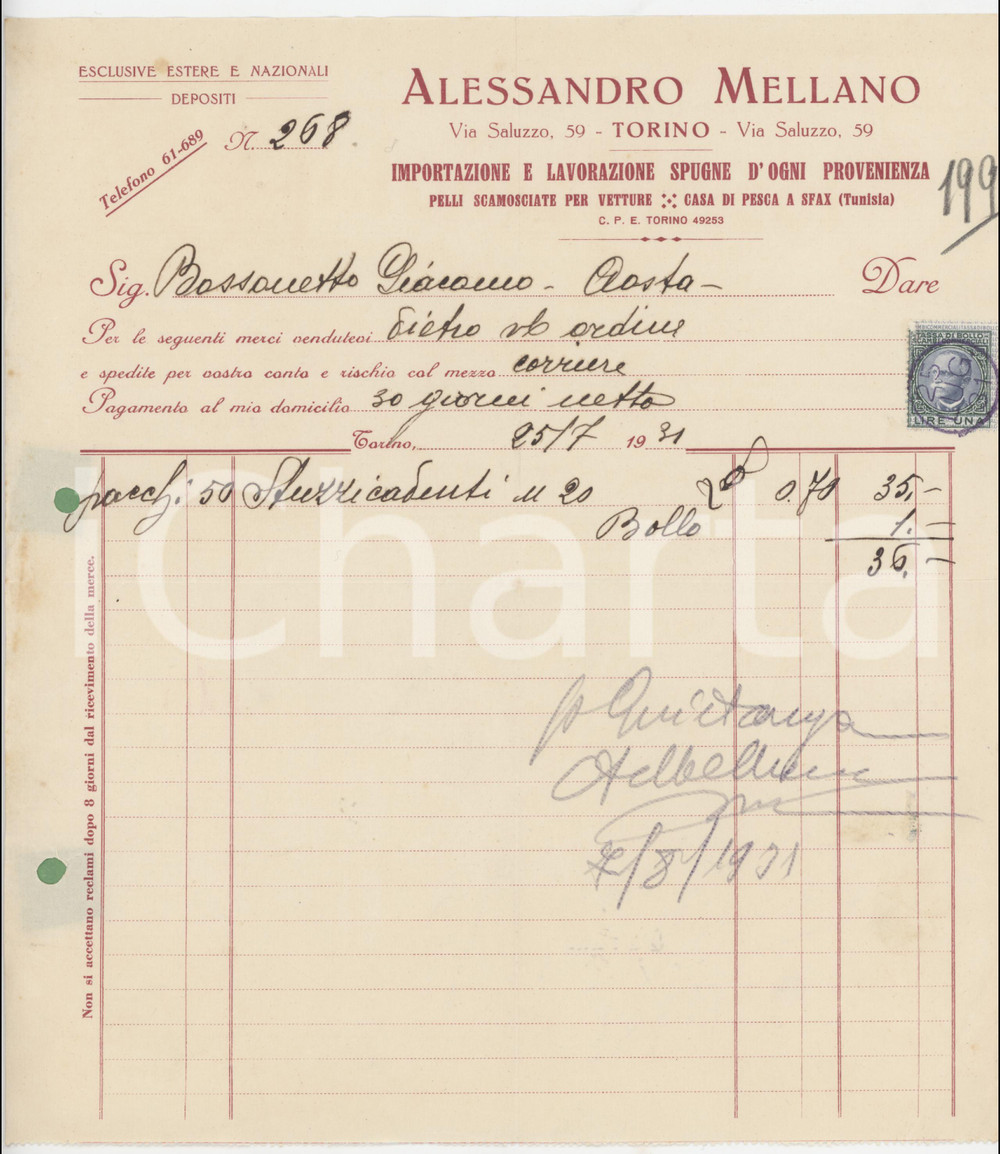 ESCLUSIVE ESTERE E NAZIONALI
DEPOSITI
Telefono 61-689
N. 268
ALESSANDRO MELLANO
Via Saluzzo, 59 - TORINO - Via Saluzzo, 59
IMPORTAZIONE E LAVORAZIONE SPUGNE D'OGNI PROVENIENZA
PELLI SCAMOSCIATE PER VETTURE CASA DI PESCA A SFAX (Tunisia)
C. P. E. TORINO 49253
199
Sig. Bossonetto Giacomo - Aosta - Dare
Per le seguenti merci vendutevi dietro vs ordine
e spedite per vostro conto e rischio col mezzo corriere
Pagamento al mio domicilio 30 giorni netto
Torino, 25/7 1931
TASSA DI BOLLO
LIRE UNA
pacchi 50 Stuzzicadenti N 20 0.70 35,-
Bollo 1.-
36,-
iCharta
Non si accettano reclami dopo 8 giorni dal ricevimento della merce.
p Quietanza
/8/1931